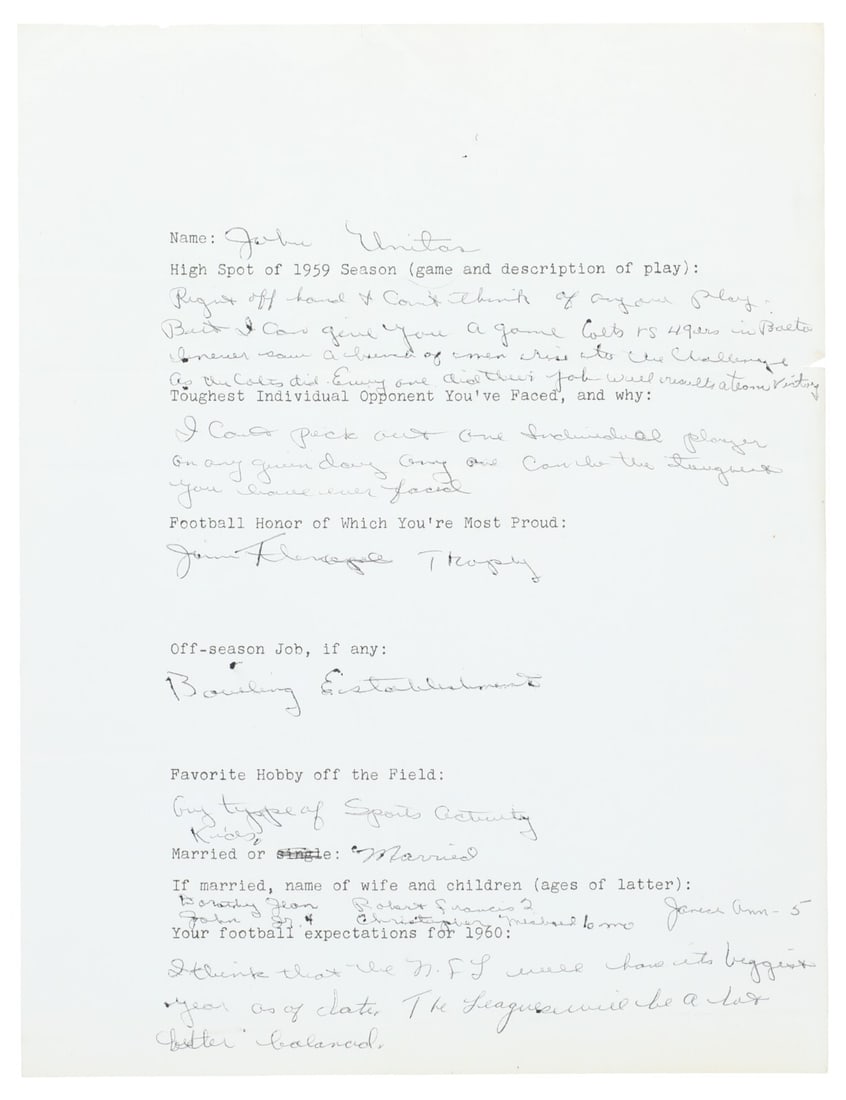 Name: John Unitas
High Spot of 1959 Season (game and description of play):
Right off hand I Can't think of any one play.
But I Can give you a game Colts vs 49ers in Balto
I never saw a bunch of men rise to the Challenge
As the Colts did. Every one did their job well results a team Victory
Toughest Individual Opponent You've Faced, and why:
I Can't pick out one Individual player
on any given day any one Can be the toughest
you have ever faced
Football Honor of Which You're Most Proud:
Jim Trophy
Off-season Job, if any:
Bowling Establishment
Favorite Hobby off the Field:
Any type of Sports Activity
Kids,
Married or single: Married
If married, name of wife and children (ages of latter):
Dorothy Jean Robert Francis 2 Janice Ann - 5
John Jr. 4 Christopher Michael 6 mo
Your football expectations for 1960:
I think that the N.F.L will have its biggest
year as of date. The League will be a lot
better balanced.